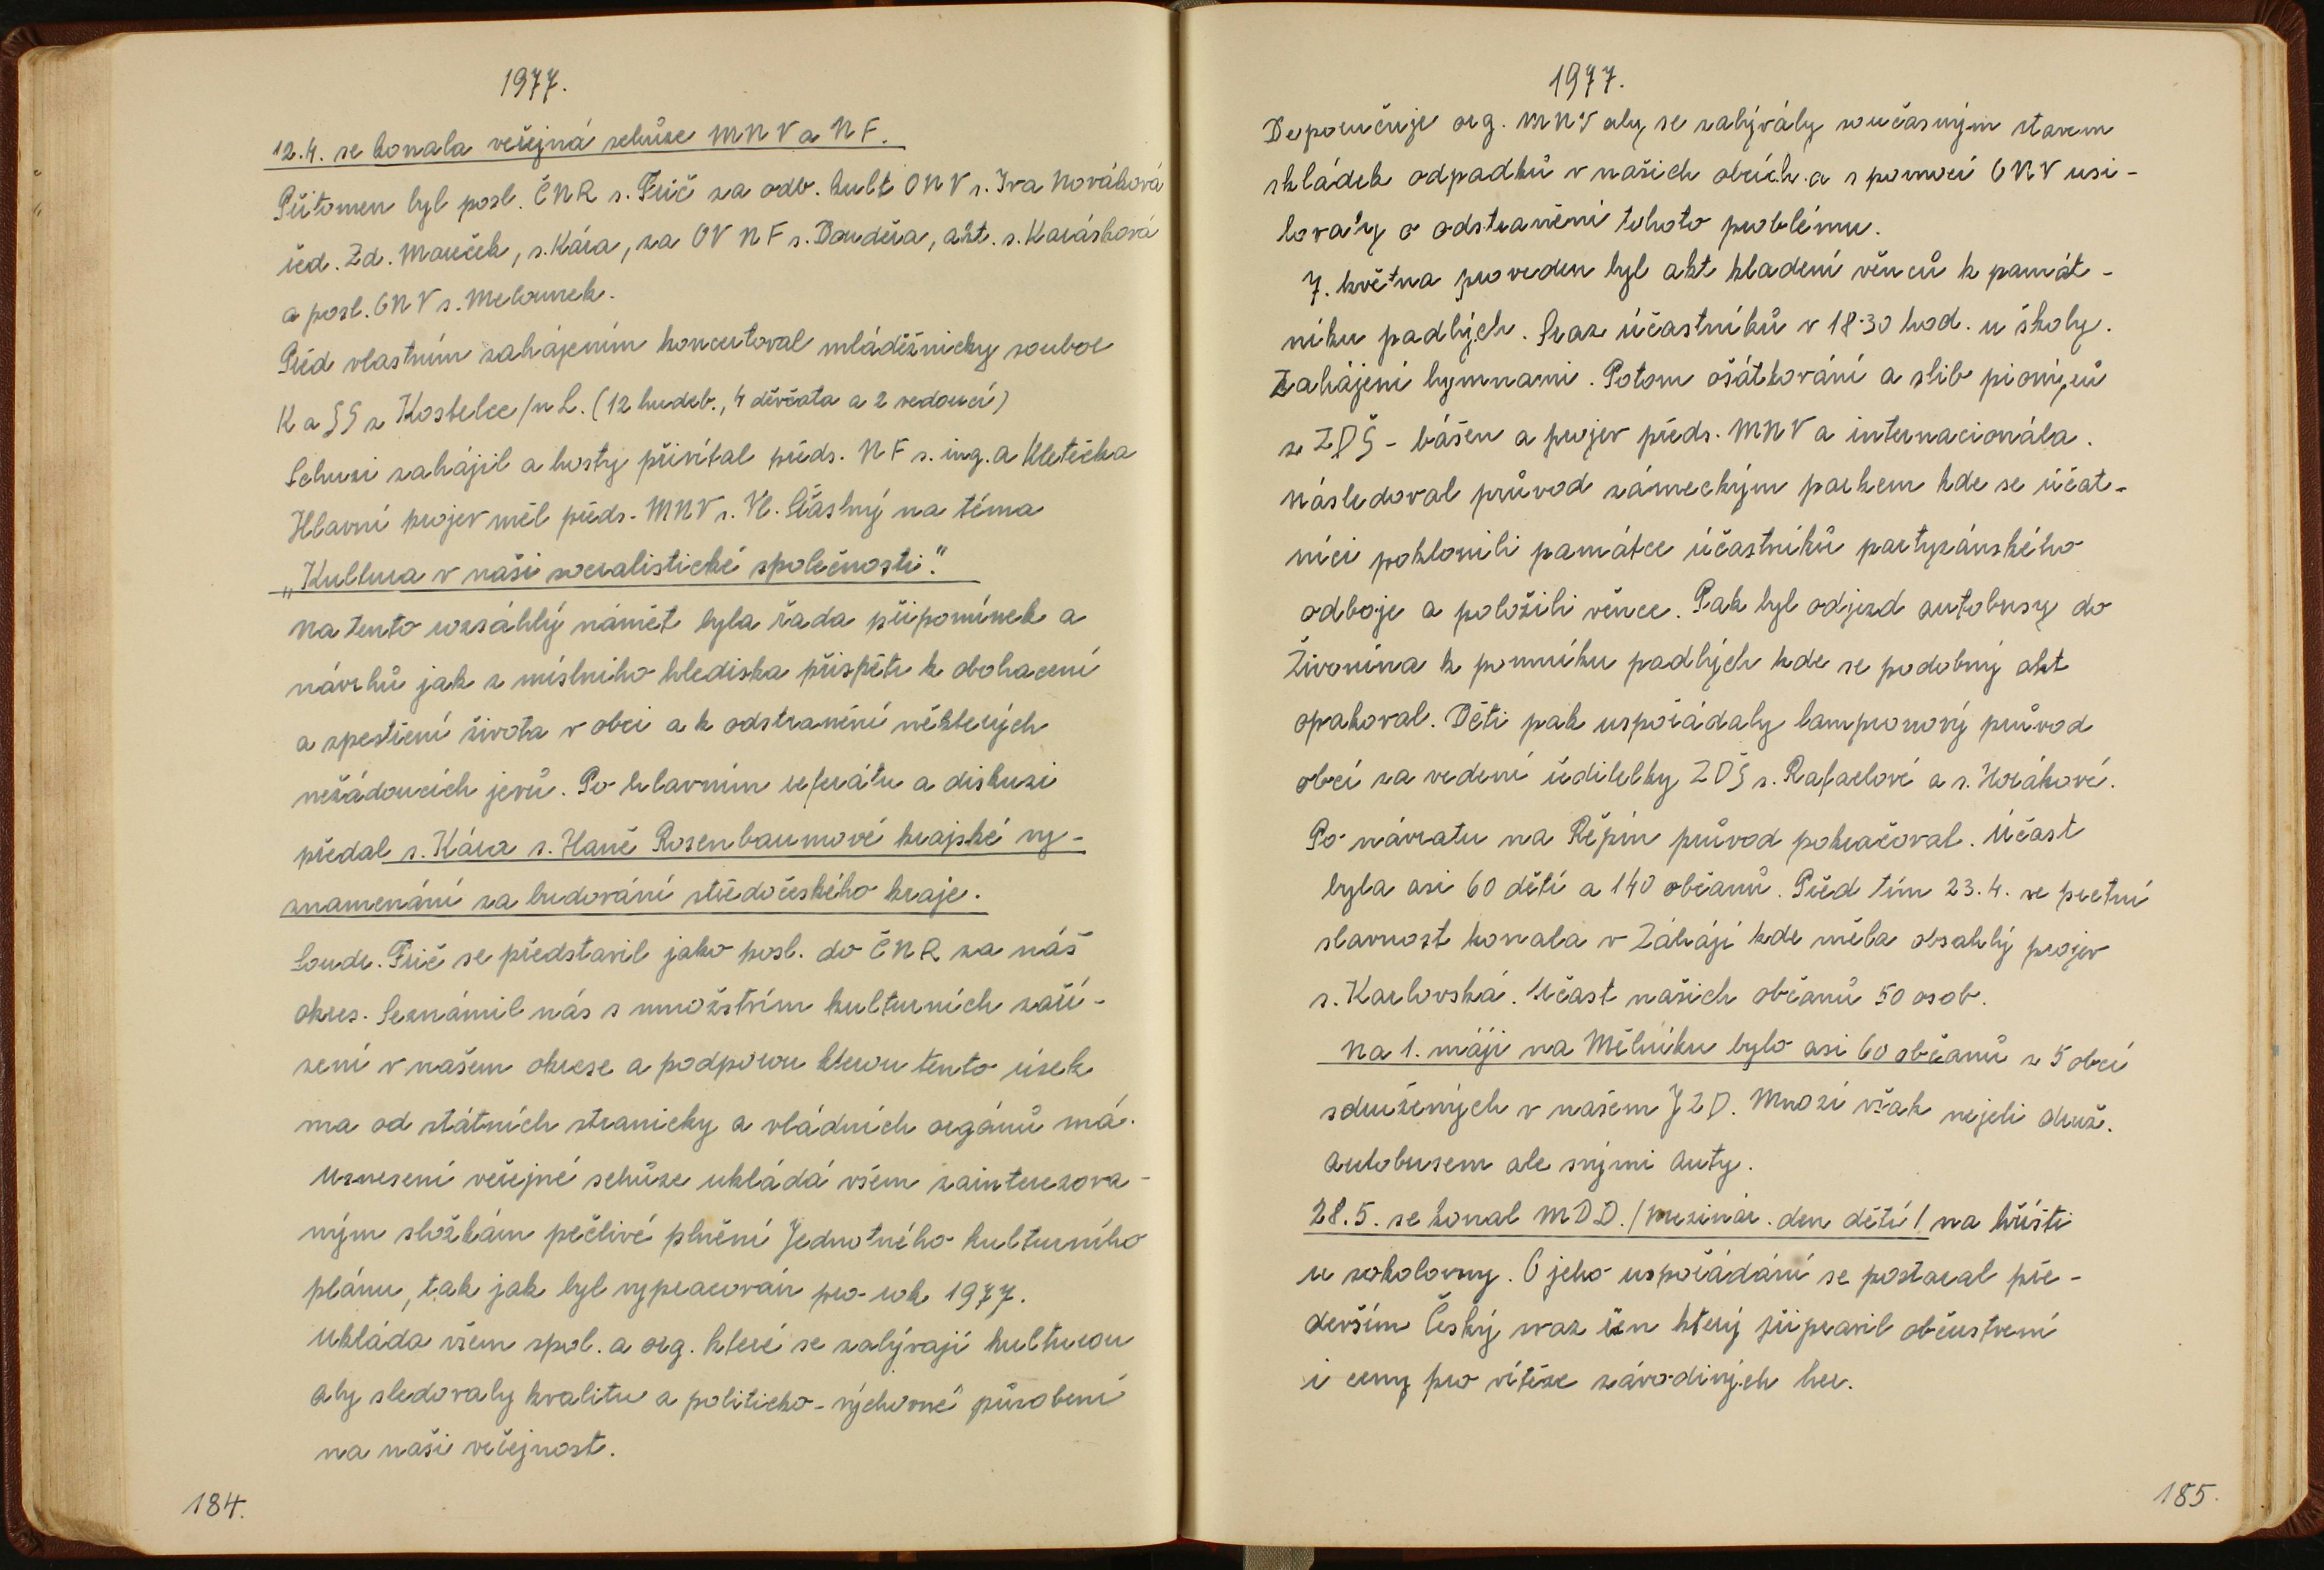 1977.
12.4. se konala veřejná schůze MNV a NF.
Přitomen byl posl. ČNR s. Frič za odb. kult ONV s. Iva Nováková
řed. Zd. Mareček, s. Kára, za OV NF s. Doudera, akt. s. Karásková
a posl. ONV s. Melounek.
Před vlastním zahájením koncertoval mláděžnicky soubor
K a SS z Kostelce /n L. (12 hudeb., 4 děvčata a 2 vedoucí)
Schuzi zahájil a hosty přivítal předs. NF s. ing. a Kletečka
Hlavní projev měl předs. MNV s. Vl. Šťástný na téma
„Kultura v naši socialistické společnosti."
Na tento rozsáhlý námět byla řada připomínek a
návrhů jak z místního hlediska přispěti k obohacení
a zpestření života v obci a k odstranění některých
nežádoucích jevů. Po hlavním referátu a diskuzi
předal s. Kára s. Haně Rosenbaumové krajské vy-
znamenání za budování středočeského kraje.
Soudr. Frič se představil jako posl. do ČNR za náš
okres. Seznámil nás s množstvím kulturních zaří-
zení v našem okrese a podporou kterou tento úsek
ma od státních stranicky a vládních orgánů má.
Usnesení veřejné schůze ukládá všem zainterezova-
ným složkám pečlivé plnění Jednotného kulturního
plánu, tak jak byl vypracován pro rok 1977.
Ukláda všem spol. a org. které se zabývají kulturou
aby sledovaly kvalitu a politicko-výchovné působení
na naši veřejnost.
184.
1977.
Doporučuje org. MNV aby se zabývály současným stavem
skládek odpadků v našich obcích a s pomocí ONV usi-
lovaly o odstranění tohoto problému.
7. května proveden byl akt kladení věnců k památ-
níku padlých. Sraz účastníků v 18·30 hod. u školy.
Zahájení hymnami. Potom ošátkování a slib pionýrů
z ZDŠ - básen a projev předs. MNV a internacionála.
Následoval průvod zámeckým parkem kde se účat-
níci poklonili památce účastníků partyzánského
odboje a položili věnce. Pak byl odjezd autobusy do
Živonína k pomníku padlých kde se podobný akt
opakoval. Děti pak uspořádaly lampionový průvod
obcí za vedení ředitelky ZDŠ s. Rafaelové a s. Horákové.
Po návratu na Řepín průvod pokračoval. Účast
byla asi 60 dětí a 140 občanů. Před tím 23.4. se pietní
slavnost konala v Záháji kde měla obsahlý projev
s. Karlovská. Účast našich občanů 50 osob.
Na 1. máji na Mělníku bylo asi 60 občanů z 5 obcí
sdružených v našem JZD. Mnozí však nejeli druž.
autobusem ale svými auty.
28.5. se konal MDD. /mezinár. den dětí/ na hřišti
u sokolovny. O jeho uspořádání se postaral pře-
devším Český svaz žen který připravil občerstvení
i ceny pro vítěze závodivých her.
185.